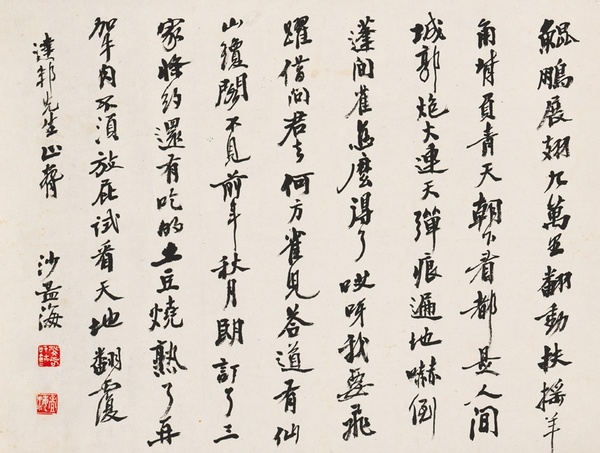 鯤鵬展翅九萬里翻動扶搖羊
角背負青天朝下看都是人間
城郭炮火連天彈痕遍地嚇倒
蓬間雀怎麼得了哎呀我要飛
躍借問君去何方雀兒答道有仙
山瓊閣不見前年秋月朗訂了三
家條約還有吃的土豆燒熟了再
加牛肉不須放屁試看天地翻覆
達邦先生正
沙孟海